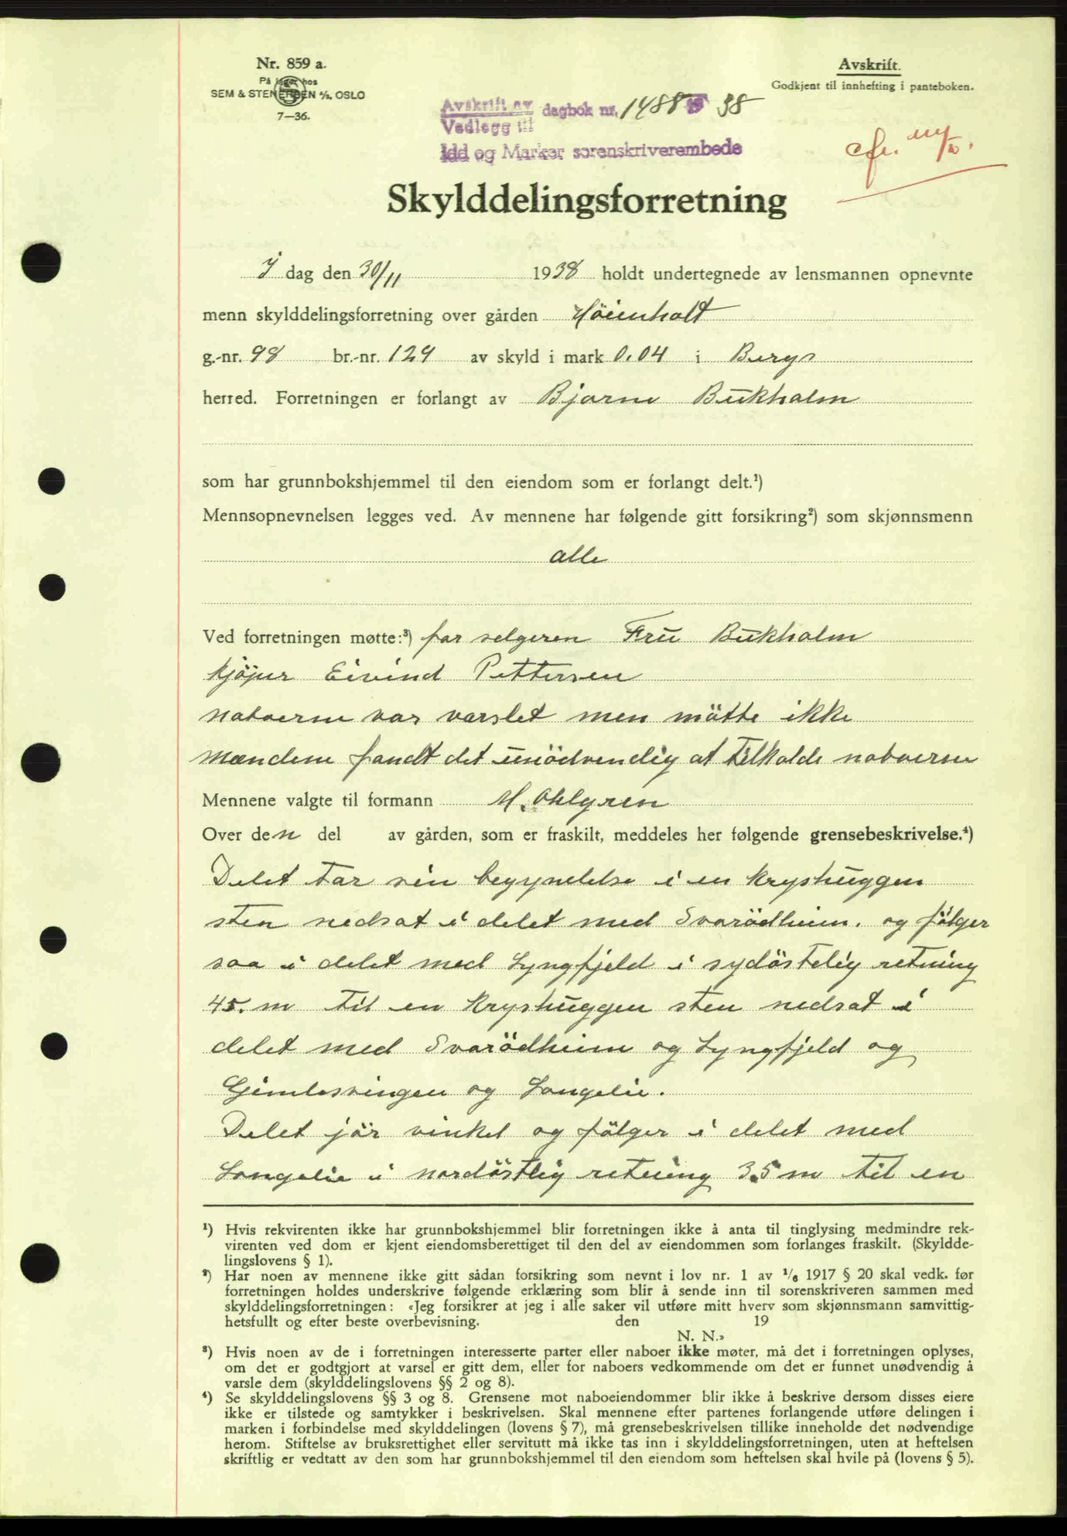 Nr. 859 a.
På lager hos
SEM & STENERSEN A/S, OSLO
7—36.
Avskrift.
Godkjent til innhefting i panteboken.
Avskrift av
Vedlegg til
dagbok nr. 1488 19 38
Idd og Marker sorenskriverembede
cfr.
Skylddelingsforretning
I dag den 30/11 1938 holdt undertegnede av lensmannen opnevnte
menn skylddelingsforretning over gården Höienholt
g.-nr. 98 br.-nr. 129 av skyld i mark 0.04 i Bergs
herred. Forretningen er forlangt av Bjarne Bukholm
som har grunnbokshjemmel til den eiendom som er forlangt delt.¹)
Mennsopnevnelsen legges ved. Av mennene har følgende gitt forsikring²) som skjønnsmenn
alle
Ved forretningen møtte:³) for selgeren Fru Bukholm
kjöper Eivind Pettersen
naboerne var varslet men mötte ikke
mændene fandt det unödvendig at tilkalde naboerne
Mennene valgte til formann M. Ohlgren
Over den del av gården, som er fraskilt, meddeles her følgende grensebeskrivelse.⁴)
Delet tar sin begynelse i en kryshuggen
sten nedsat i delet med Svarödheim. og fölger
saa i delet med Lyngfjeld i sydöstelig retning
45. m til en kryshuggen sten nedsat i
delet med Svarödheim og Lyngfjeld og
Gimlesvingen og Langelie.
Delet jör vinkel og fölger i delet med
Langelie i nordöstlig retning 3.5 m til en
¹) Hvis rekvirenten ikke har grunnbokshjemmel blir forretningen ikke å anta til tinglysing medmindre rek-
virenten ved dom er kjent eiendomsberettiget til den del av eiendommen som forlanges fraskilt. (Skyldde-
lingslovens § 1).
²) Har noen av mennene ikke gitt sådan forsikring som nevnt i lov nr. 1 av 1/6 1917 § 20 skal vedk. før
forretningen holdes underskrive følgende erklæring som blir å sende inn til sorenskriveren sammen med
skylddelingsforretningen: «Jeg forsikrer at jeg i alle saker vil utføre mitt hverv som skjønnsmann samvittig-
hetsfullt og efter beste overbevisning. den 19
N. N.»
³) Hvis noen av de i forretningen interesserte parter eller naboer ikke møter, må det i forretningen oplyses,
om det er godtgjort at varsel er gitt dem, eller for naboers vedkommende om det er funnet unødvendig å
varsle dem (skylddelingslovens §§ 2 og 8).
⁴) Se skylddelingslovens §§ 3 og 8. Grensene mot naboeiendommer blir ikke å beskrive dersom disses eiere
ikke er tilstede og samtykker i beskrivelsen. Skal mennene efter partenes forlangende utføre delingen i
marken i forbindelse med skylddelingen (lovens § 7), må grensebeskrivelsen tillike inneholde det nødvendige
herom. Stiftelse av bruksrettighet eller servitutt må ikke tas inn i skylddelingsforretningen, uten at heftelsen
skriftlig er vedtatt av den som har grunnbokshjemmel til den eiendom som heftelsen skal hvile på (lovens § 5).